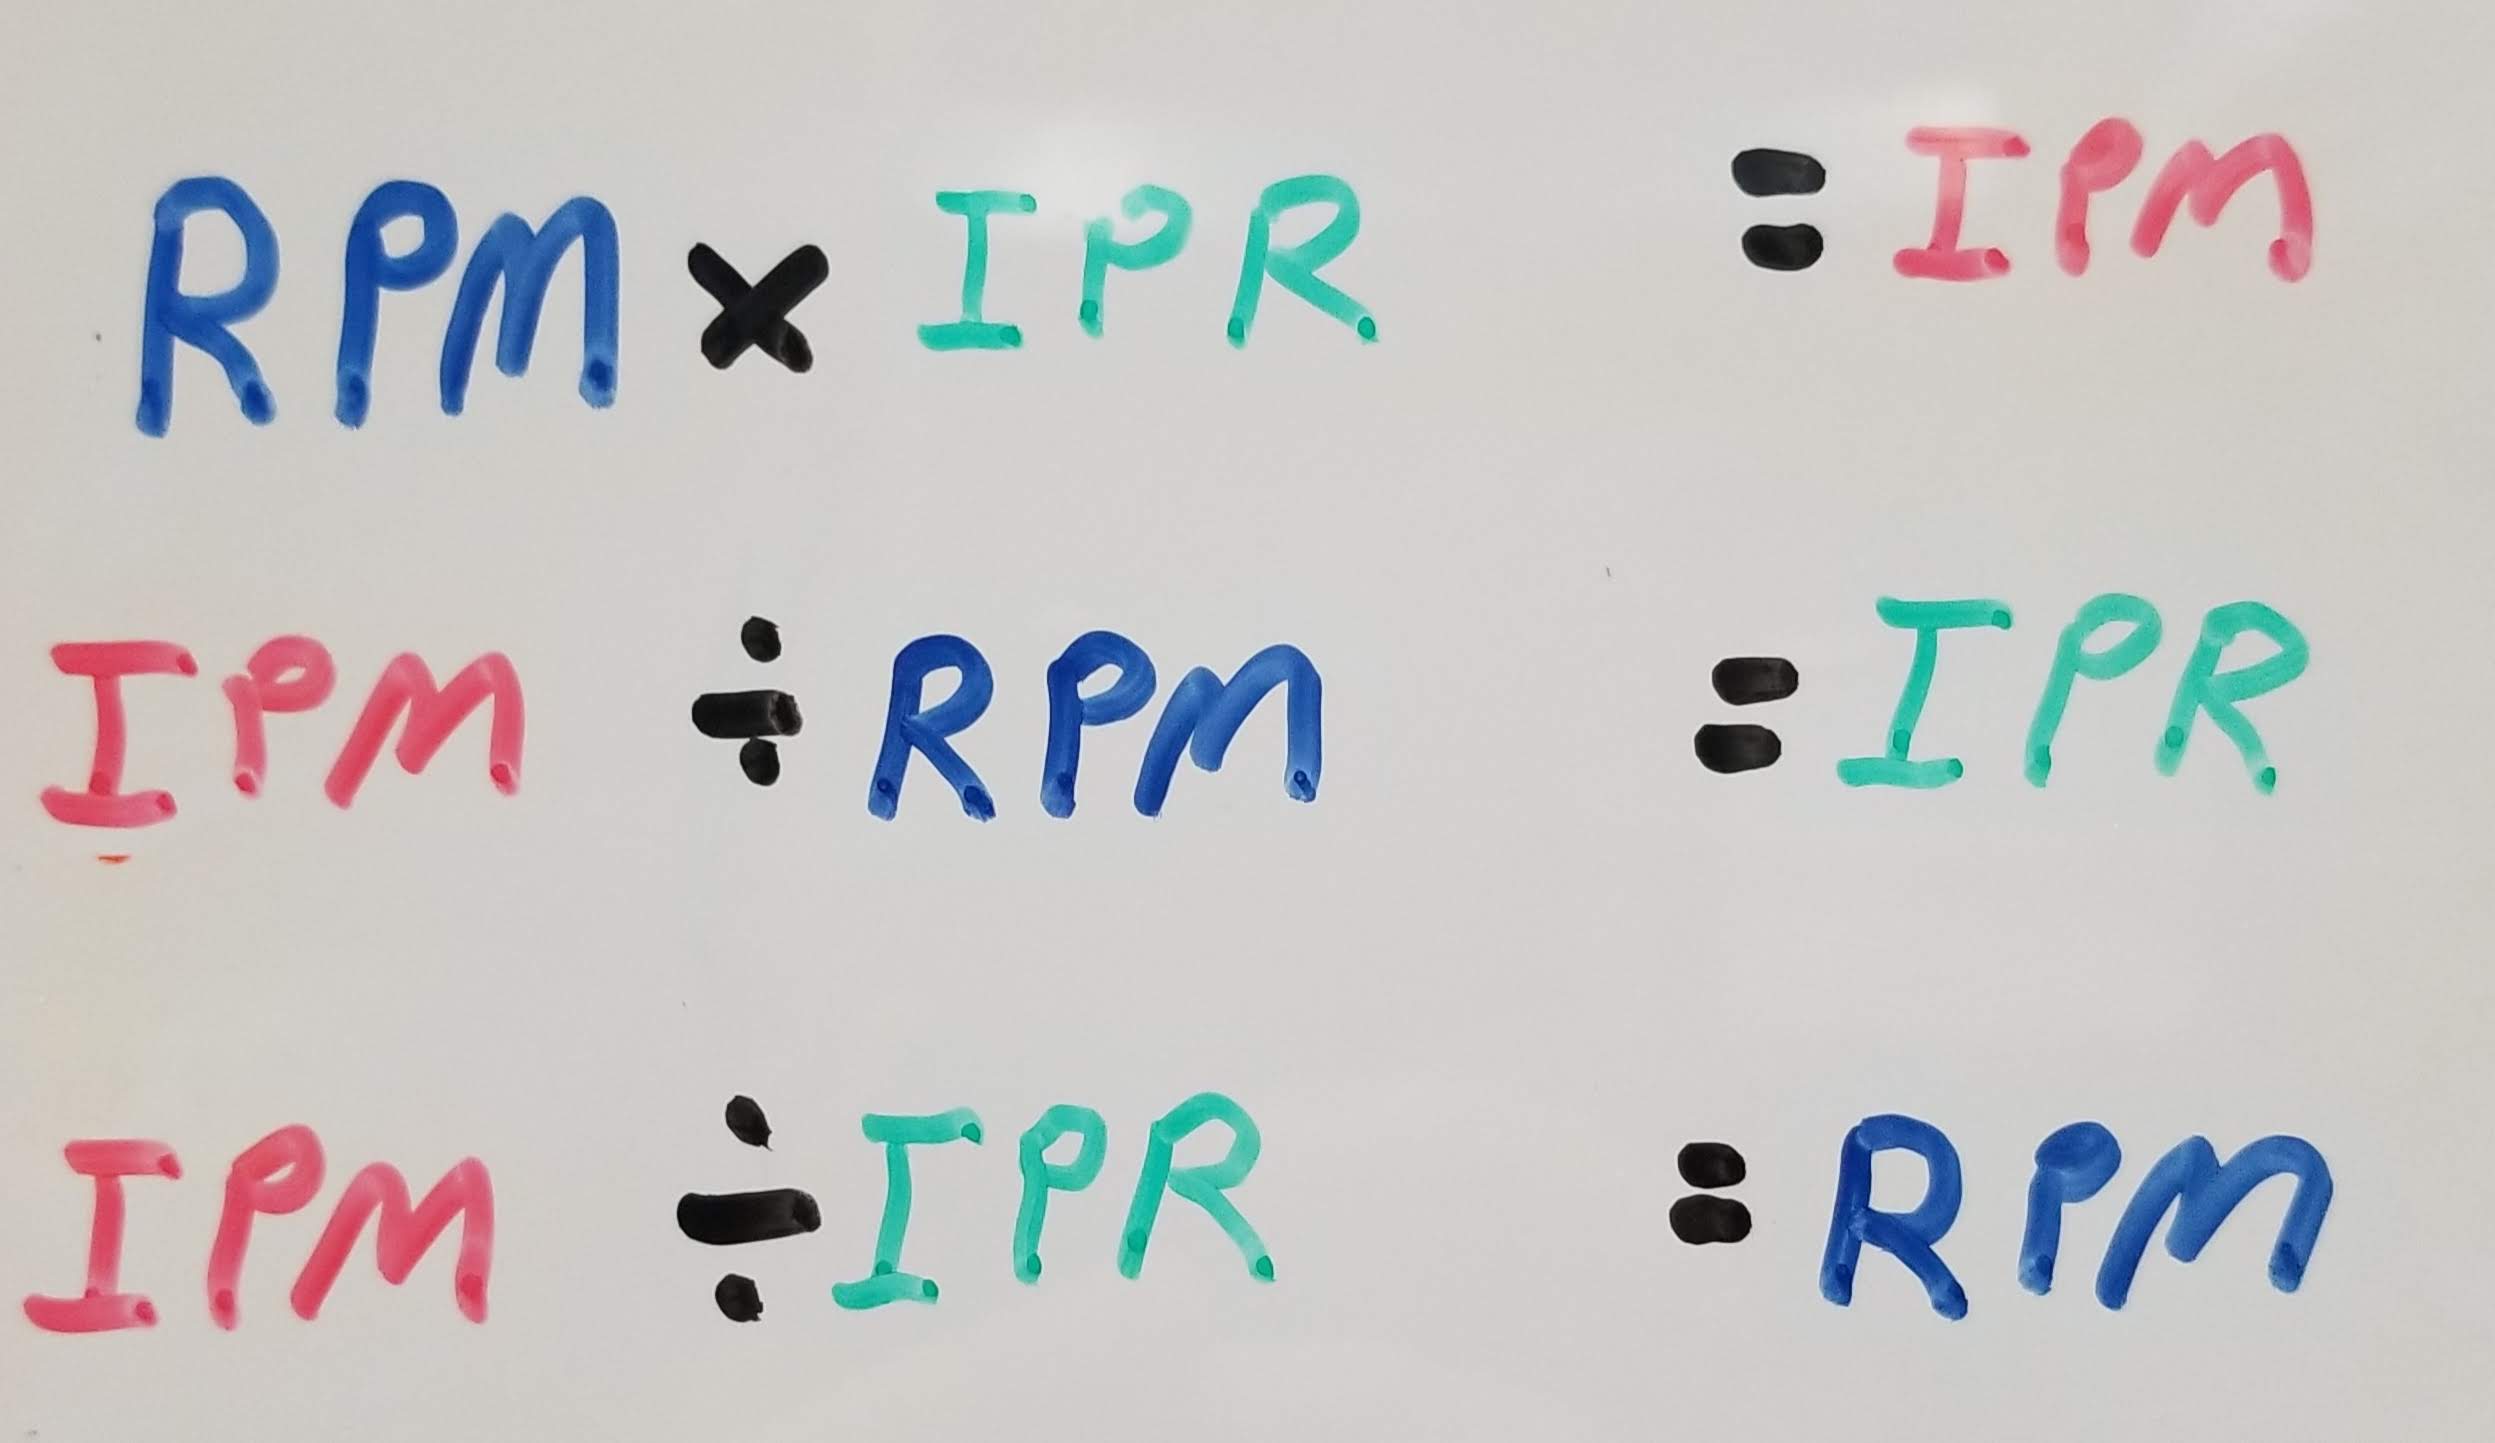 RPM × IPR = IPM
IPM ÷ RPM = IPR
IPM ÷ IPR = RPM